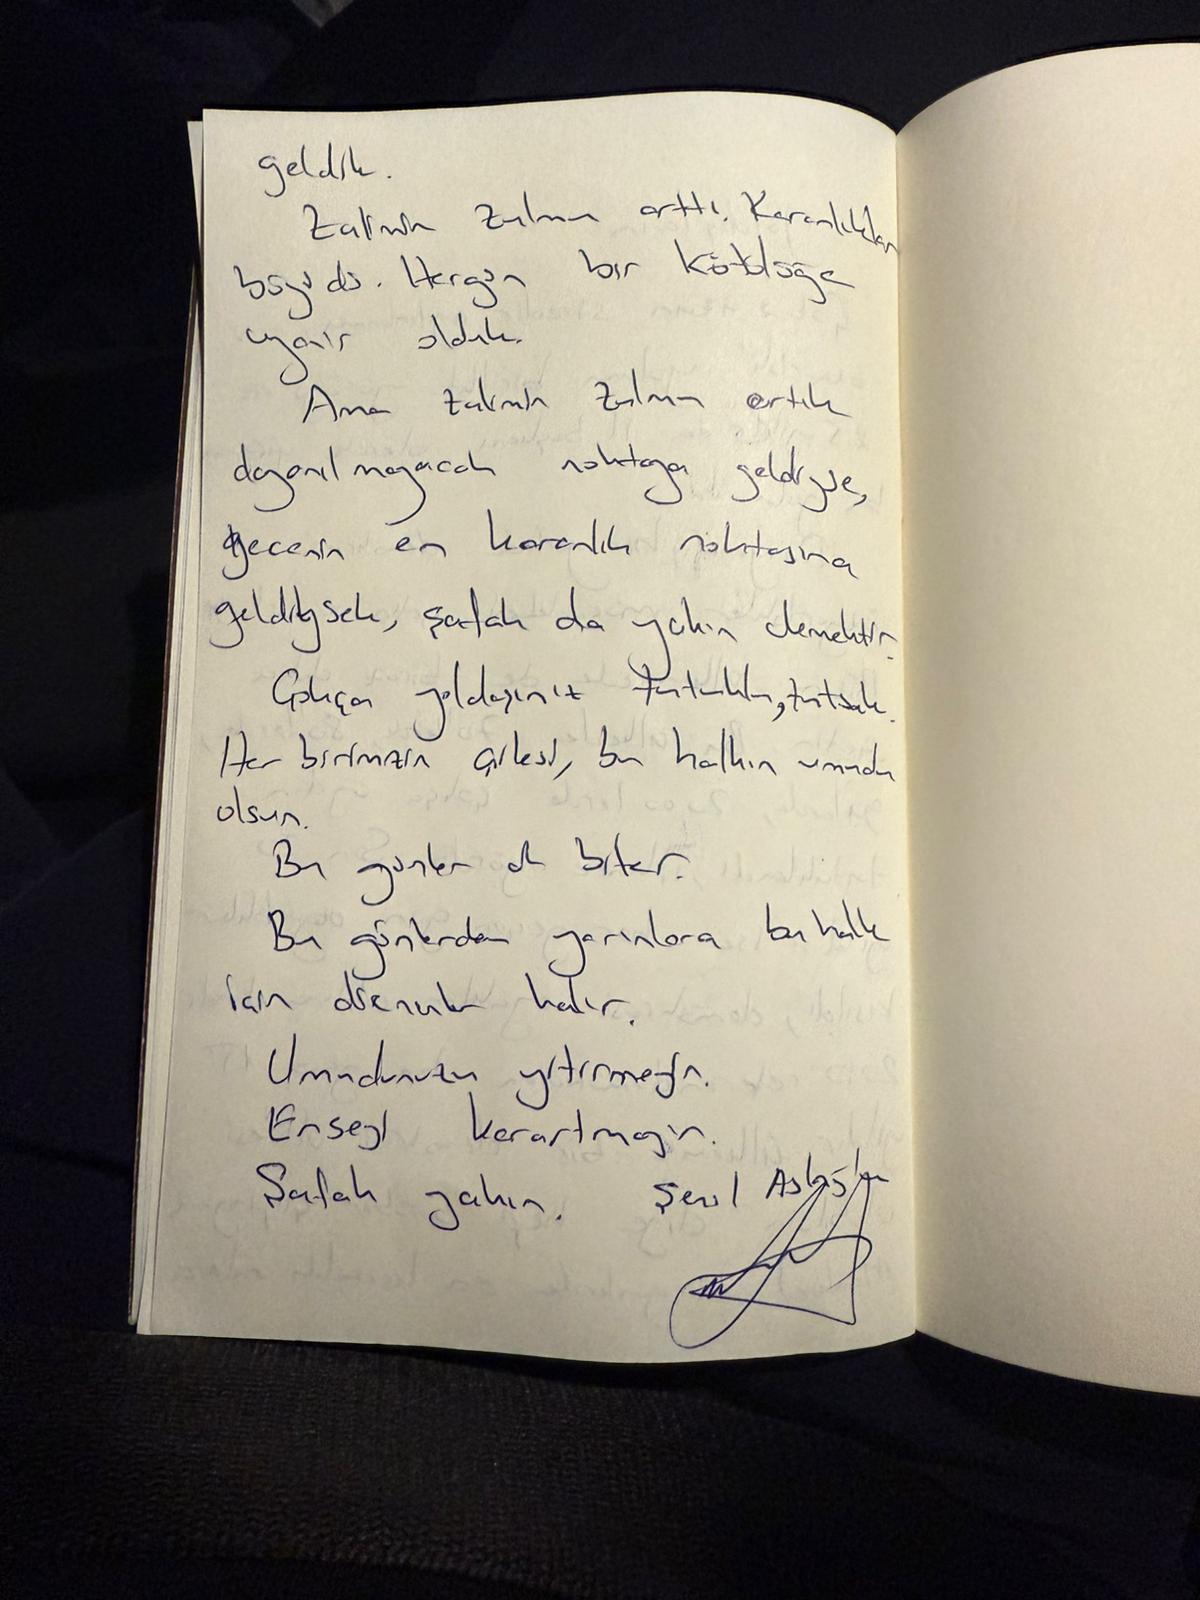 geldik.
Zalimin zulmü arttı. Karanlıkları
büyüdü. Hergün bir kötülüğe
uyanır olduk.
Ama zalimin zulmü artık
dayanılmayacak noktaya geldiyse,
gecenin en karanlık noktasına
geldiysek, şafak da yakın demektir.
Çokça yoldaşınız tutuklu, tutsak.
Her birimizin çilesi, bu halkın umudu
olsun.
Bu günler de biter.
Bu günlerden yarınlara bu halk
için direnenler kalır.
Umudunuzu yitirmeyin.
Enseyi karartmayın.
Şafak yakın. Şenol Aslanoğlu